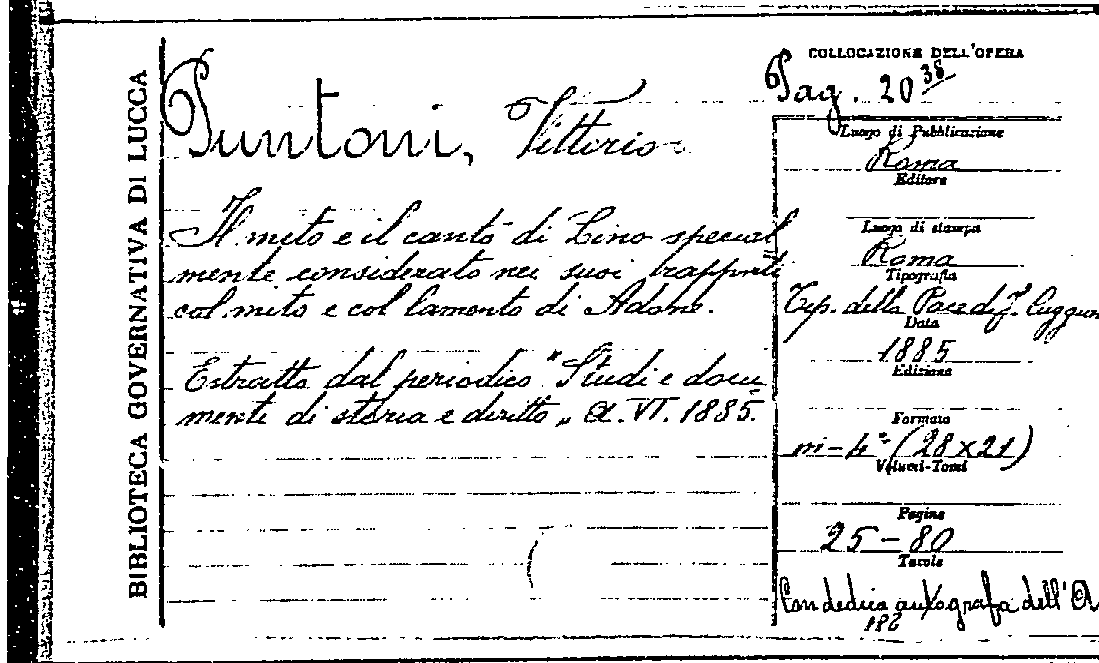 BIBLIOTECA GOVERNATIVA DI LUCCA
Puntoni, Vittorio
Il mito e il canto di Lino special
mente considerato nei suoi rapporti
col mito e col lamento di Adone.
Estratto dal periodico "Studi e docu
menti di storia e diritto„ A. VI. 1885.
COLLOCAZIONE DELL'OPERA
Pag. 20 38
Luogo di Pubblicazione
Roma
Editore
Luogo di stampa
Roma
Tipografia
Tip. della Pace di F. Cuggiani
Data
1885
Edizione
Formato
in-4° (28x21)
Volumi-Tomi
Pagine
25-80
Tavole
Con dedica autografa dell'A
182